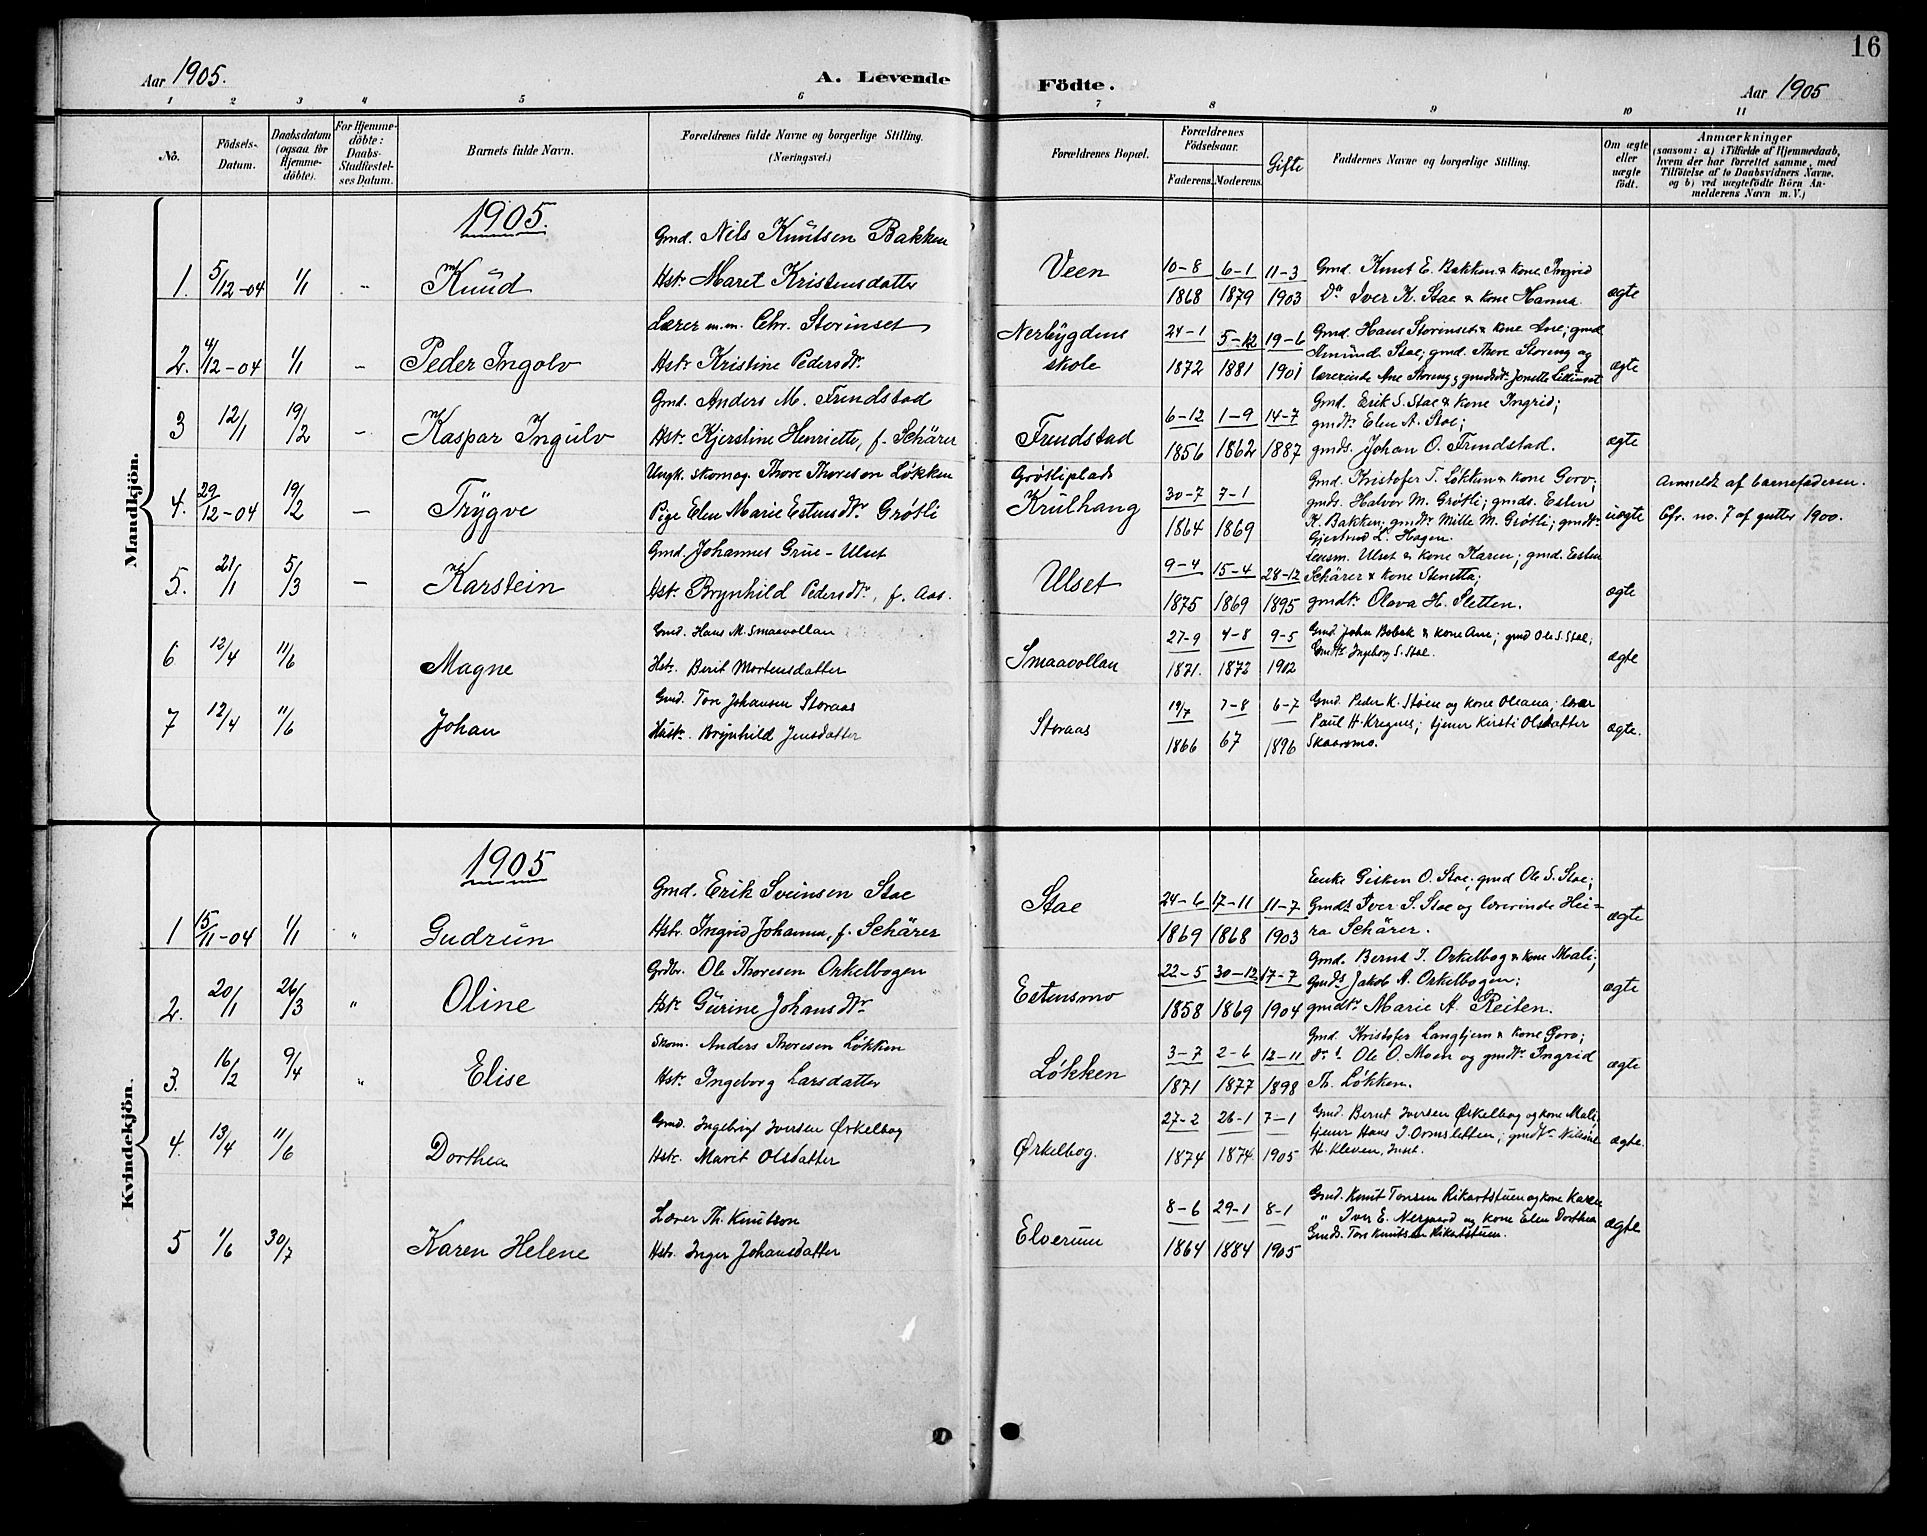 16
Aar 1905.
A. Levende
Födte.
Aar 1905
1 2 3 4 5 6 7 8 9 10 11
No.
Födsels-
Datum.
Daabsdatum
(ogsaa for
Hjemme-
döbte).
For Hjemme-
döbte:
Daabs-
Stadfæstel-
ses Datum.
Barnets fulde Navn.
Forældrenes fulde Navne og borgerlige Stilling.
(Næringsvei.)
Forældrenes Bopæl.
Forældrenes
Födselsaar.
Faderens. Moderens.
Gifte
Faddernes Navne og borgerlige Stilling.
Om ægte
eller
uægte
født.
Anmærkninger
(saasom: a) i Tilfælde af Hjemmedaab,
hvem der har forrettet samme, med
Tilföielse af to Daabsvidners Navne.
og b) ved uægtefödte Börn An-
melderens Navn m. V.)
Mandkjön.
1905.
Gmd. Nils Knutsen Bakken
1. 5/12-04 1/1 Knud
Hstr. Marit Kristensdatter
Veen
10-8 6-1 11-3
1868 1879 1903
Gmd. Knut E. Bakken & kone Ingrid
Do Iver K. Stae & kone Hanna.
ægte
Lærer m.m. Chr. Storinset
2. 4/12-04 1/1 - Peder Ingolv
Hstr. Kristine Pedersdtr.
Nerbygdens
skole
24-1 5-12 19-6
1872 1881 1901
Gmd. Hans Storinset & kone Ane; gmd.
Amund Stae; gmd. Thore Storeng og
lærerinde Ane Storeng; gmdsdtr. Jonette Lillinset
ægte
Gmd. Anders M. Frundstad
3 12/1 19/2 - Kaspar Ingulv
Hstr. Kjerstine Henriette, f. Schärer
Frundstad
6-12 1-9 14-7
1856 1862 1887
Gmd. Erik S. Stae & kone Ingrid;
gmdtr. Elen A. Stae;
gmds. Johan O. Frundstad.
ægte
Ungk. skomag. Thore Thoresen Løkken
4. 29/12-04 19/2 - Trygve
Pige Elen Marie Estensdtr. Grøtli
Grøtliplads
Krulhaug
30-7 7-1
1864 1869
Gmd. Kristofer T. Løkken & kone Goro;
gmds. Halvor M. Grøtli; gmds. Esten
K. Bakken; gmdtr. Mille M. Grøtli; gmdtr.
Gjertrud L. Hagen.
uægte
Anmeldt af barnefaderen.
Cfr. no. 7 af gutter 1900.
Gmd. Johannes Grue-Ulset
5. 21/1 5/3 - Karstein
Hstr. Brynhild Pedersdtr., f. Aas.
Ulset
9-4 15-4 28-12
1875 1869 1895
Lensm. Ulset & kone Karen; gmd. Esten
Schärer & kone Stenetta;
gmdtr. Olava H. Sletten.
ægte
Gmd. Hans M. Smaavollan
6 12/4 11/6 Magne
Hstr. Berit Mortensdatter
Smaavollan
27-9 4-8 9-5
1871. 1872 1902
Gmd. John Bobak & kone Ane; gmd Ole S. Stae;
Gmdtr. Ingeborg S. Stae.
ægte
Gmd. Tore Johansen Storaas
7 12/4 11/6 Johan
Hustr. Brynhild Jensdatter
Storaas
19/7 7-8 6-7
1866 67 1896
Gmd. Peder K. Støen og kone Oleana; lærer
Paul H. Kregnes; tjener Kirsti Olsdatter
Skaaromo.
ægte.
Kvindekjön.
1905
Gmd. Erik Sveinsen Stae
1 15/11-04 1/1 " Gudrun
Hstr. Ingrid Johanna, f. Schärer
Stae
24-6 17-11 11-7
1869 1868 1903
Enke Gisken O. Stae; gmd Ole S. Stae;
Gmds Iver S. Stae og lærerinde
ra Schärer.
ægte
Grdbr. Ole Thoresen Orkelbogen
2. 20/1 26/3 " Oline
Hstr. Gurine Johansdtr
Estensmo
22-5 30-12 17-7
1858 1869 1904
Gmd. Bernt I. Orkelbog & kone Mali;
Gmds Jakob A. Orkelbogen;
gmdtr Marie A. Reiten.
ægte
Skom. Anders Thoresen Løkken
3. 16/2 9/4 " Elise
Hstr. Ingeborg Larsdatter
Løkken
3-7 2-6 12-11
1871 1877 1898
Gmd. Kristofer Langbjern & kone Goro;
do Ole O. Moen og gmdtr. Ingrid
Th. Løkken.
ægte
Gmd. Ingebrigt Iversen Ørkelbog
4. 13/4 11/6 Dorthea
Hstr. Marit Olsdatter
Ørkelbog.
27-2 26-1 7-1
1874 1874 1905
Gmd. Bernt Iversen Ørkelbog og kone Mali,
tjener Hans J. Ormsletten; gmdtr
H. Kleven, Inset.
ægte.
Lærer Th. Knutson
5 1/6 30/7 Karen Helene
Hstr. Inger Johansdatter
Elverum
8-6 29-1 8-1
1864 1884 1905
Gmd. Knut Tonsen Rikartstuen og kone Karen
" Iver E. Nergaard og kone Elen Dorthea
Gmds. Tore Knutsen Rikartstuen.
ægte